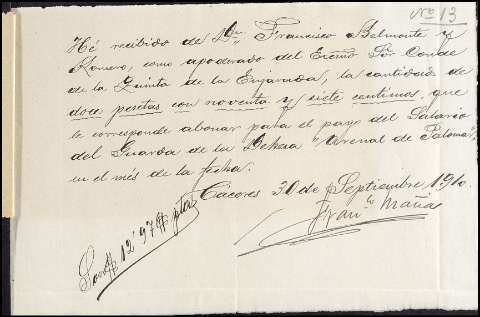 Nº 13
Hé recibido de Dn. Francisco Belmonte y
Romero, como apoderado del Excmo Sor Conde
de la Quinta de la Enjarada, la cantidad de
doce pesetas con noventa y siete centimos, que
le corresponde abonar para el pago del Salario
del Guarda de la Dehesa "Arenal de Paloma",
en el més de la fecha.
Cáceres 30 de Septiembre 1910.
Franco Mañas
Son # 12'97 # ptas